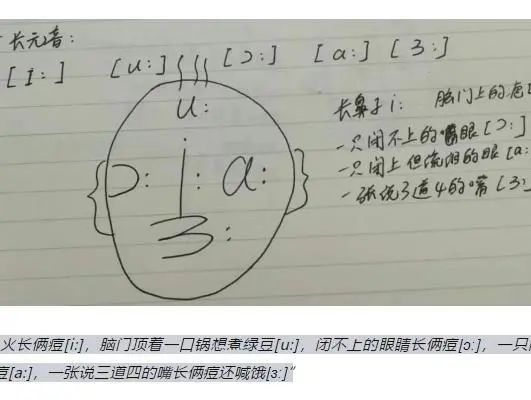 长元音:
[I:] [u:] [ɔ:] [a:] [3:]
u:
ɔ: i: a:
3:
长鼻子 i: 脑门上的疤
一只闭不上的眼[ɔ:]
一只闭上但流泪的眼[a:
一张说3道4的嘴[3:]
火长俩痘[i:]，脑门顶着一口锅想煮绿豆[u:]，闭不上的眼睛长俩痘[ɔ:]，一只
痘[a:]，一张说三道四的嘴长俩痘还喊饿[ɜ:]"